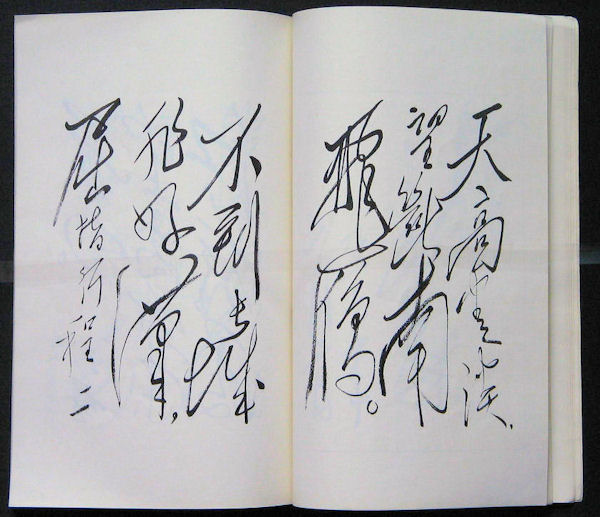 天高雲淡，
望斷南
飛雁。
不到長城
非好漢，
屈指行程二